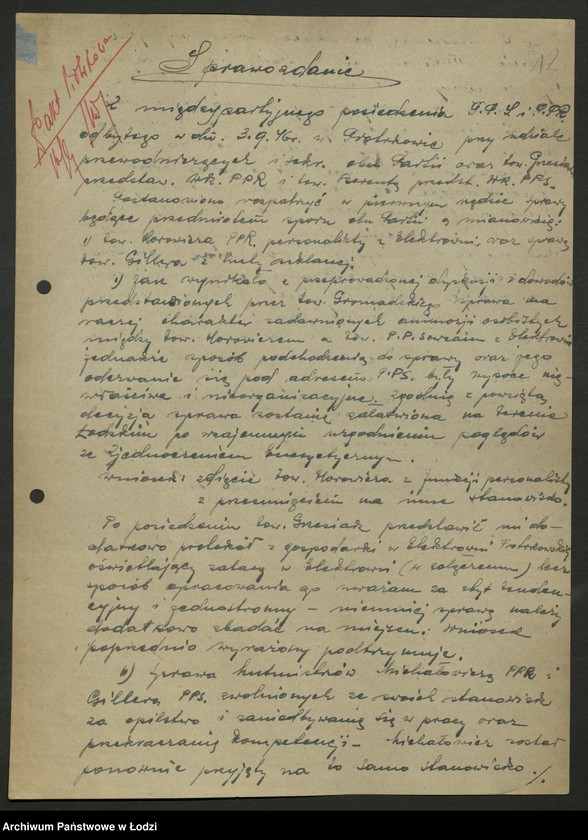 12
Sprawozdanie
z międzypartyjnego posiedzenia P.P.S. i P.PR.
odbytego w dn. 3.9.46r. w Piotrkowie przy udziale
przewodniczących i sekr. obu Partii oraz tow.
przedstaw. WK. PPR i tow. przedst. WK. PPS.
Postanowiono rozpatrzyć w pierwszym rzędzie sprawy
będące przedmiotem sporu obu Partii a mianowicie:
1) tow. Horowicza PPR. personalisty z Elektrowni, oraz sprawę
tow. Gillera z Huty szklanej.
1) Jak wynikało z przeprowadzonej dyskusji i dowodów
przedstawionych przez tow. Gromadzkiego sprawa ma
raczej charakter zadawnionych animozji osobistych
między tow. Horowiczem a tow. P.P.Sowcami z Elektrowni
jednakże sposób podchodzenia do sprawy oraz jego
odezwanie się pod adresem P.PS. były wysoce nie-
właściwe i nieorganizacyjne. Zgodnie z powziętą
decyzją sprawa zostanie załatwiona na terenie
Łodzkim po wzajemnym uzgodnieniu poglądów
ze Zjednoczeniem Energetycznym.
Wniosek: zdjęcie tow. Horowicza z funkcji personalisty
z przesunięciem na inne stanowisko.
Po posiedzeniu tow. Grzesiak przedstawił mi do-
datkowo protokół z gospodarki w Elektrowni Piotrkowskiej
oświetlający zatarg w Elektrowni (w załączeniu) lecz
sposób opracowania go uważam za zbyt tenden-
cyjny i jednostronny – niemniej sprawę należy
dodatkowo zbadać na miejscu. Wniosek
poprzednio wyrażony podtrzymuję.
11) Sprawa hutmistrzów Michałowicza PPR i
Gillera PPS. zwolnionych ze swoich stanowisk
za opilstwo i zaniedbywanie się w pracy oraz
przekraczanie kompetencji – Michałowicz został
ponownie przyjęty na to samo stanowisko ./.
Archiwum Państwowe w Łodzi